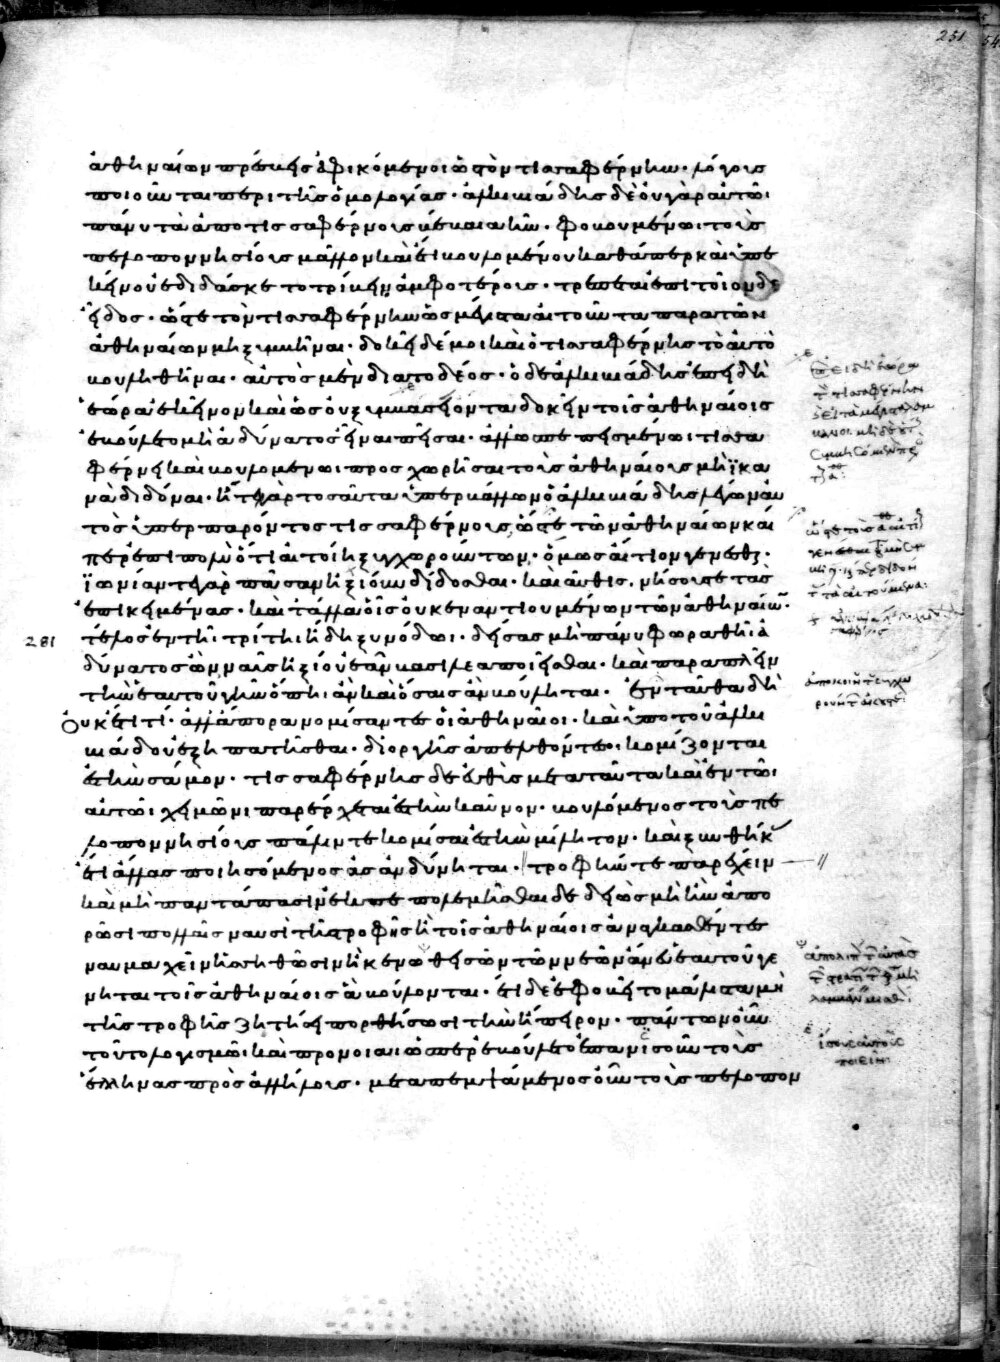 ἀθηναίων πρέσβεις ἀφικόμενοι ὡς τὸν τισσαφέρνην· λόγους
ποιοῦνται περὶ τῆς ὁμολογίας· ἀλκιβιάδης δὲ οὐ γὰρ αὐτῶι
πάνυ τὰ ἀπὸ τισσαφέρνους βέβαια ἦν· φοβουμένωι τοὺς
πελοποννησίους μᾶλλον καὶ ἔτι βουλομένου καθάπερ καὶ ὑπε
κείνου ἐδιδάσκετο τρίβειν ἀμφοτέρους· τρέπεται ἐπὶ τοιόνδε
εἶδος· ὥστε τὸν τισσαφέρνην ὡς μέγιστα αἰτοῦντα παρὰ τῶν
ἀθηναίων μὴ ξυμβῆναι· δοκεῖ δέ μοι καὶ ὁ τισσαφέρνης τὸ αὐτὸ
βουληθῆναι· αὐτὸς μὲν διὰ τὸ δέος· ὁ δὲ ἀλκιβιάδης ἐπειδὴ
ἑώρα ἐκεῖνον καὶ ὡς οὐ ξυμβασείοντα δοκεῖν τοῖς ἀθηναίοις
ἐβούλετο μὴ ἀδύνατος εἶναι πεῖσαι· ἀλλ' ὡς πεπεισμένωι τισσα
φέρνει καὶ βουλομένωι προσχωρῆσαι τοὺς ἀθηναίους μὴ ϊκα
νὰ διδόναι· ἤτει γὰρ τοσαῦτα ὑπερβάλλων ὁ ἀλκιβιάδης λέγων αὐ
τὸς ὑπὲρ παρόντος τισσαφέρνους, ὥστε τῶν ἀθηναίων καί
περ ἐπὶ πολὺ ὅτι αἰτοίη ξυγχωρούντων· ὅμως αἴτιον γενέσθαι·
ϊωνίαν τε γὰρ πᾶσαν ἠξίουν δίδοσθαι· καὶ αὖθις· νήσους τε τὰς
ἐπικειμένας· καὶ τἄλλα οἷς οὐκ ἐναντιουμένων τῶν ἀθηναίων·
281 τέλος ἐν τῆι τρίτηι ἤδη ξυνόδωι· δείσας μὴ πάνυ φωραθῆι ἀ
δύνατος ὢν ναῦς ἠξίου ἐᾶν βασιλέα ποιεῖσθαι· καὶ παραπλεῖν
τὴν ἑαυτοῦ γῆν ὅπηι ἂν καὶ ὅσαις ἂν βούληται· ἐνταῦθα δὴ
οὐκέτι τί· ἀλλ' ἄπορα νομίσαντες οἱ ἀθηναῖοι· καὶ ὑπὸ τοῦ ἀλκι
βιάδου ἐξηπατῆσθαι· δι' ὀργῆς ἀπελθόντες· κομίζονται
ἐς τὴν σάμον· τισσαφέρνης δὲ εὐθὺς μετὰ ταῦτα καὶ ἐν τῶι
αὐτῶι χειμῶνι παρέρχεται ἐς τὴν καῦνον· βουλόμενος τοὺς πε
λοποννησίους πάλιν τε κομίσαι ἐς τὴν μίλητον· καὶ ξυνθήκ
ἔτι ἄλλας ποιησόμενος ἃς ἂν δύνηται· τροφήν τε παρέχειν
καὶ μὴ παντάπασιν ἐκπεπολεμῆσθαι δεδιὼς μὴ ἢν ἀπο
ρῶσι πολλαῖς ναυσὶ τῆς τροφῆς ἢ τοῖς ἀθηναίοις ἀναγκασθέντες
ναυμαχεῖν ἡσσηθῶσιν ἢ κενωθεισῶν τῶν νεῶν ἄνευ ἑαυτοῦ γέ
νηται τοῖς ἀθηναίοις ἃ βούλονται· ἔτι δὲ ἐφοβεῖτο μάλιστα μὴ
τῆς τροφῆς ζητήσει πορθήσωσι τὴν ἤπειρον· πάντων οὖν
τούτων λογισμῶι καὶ προνοίαι ὥσπερ ἐβούλετο ἐπανισοῦν τοὺς
ἕλληνας πρὸς ἀλλήλους· μεταπεμψάμενος οὖν τοὺς πελοπον
251